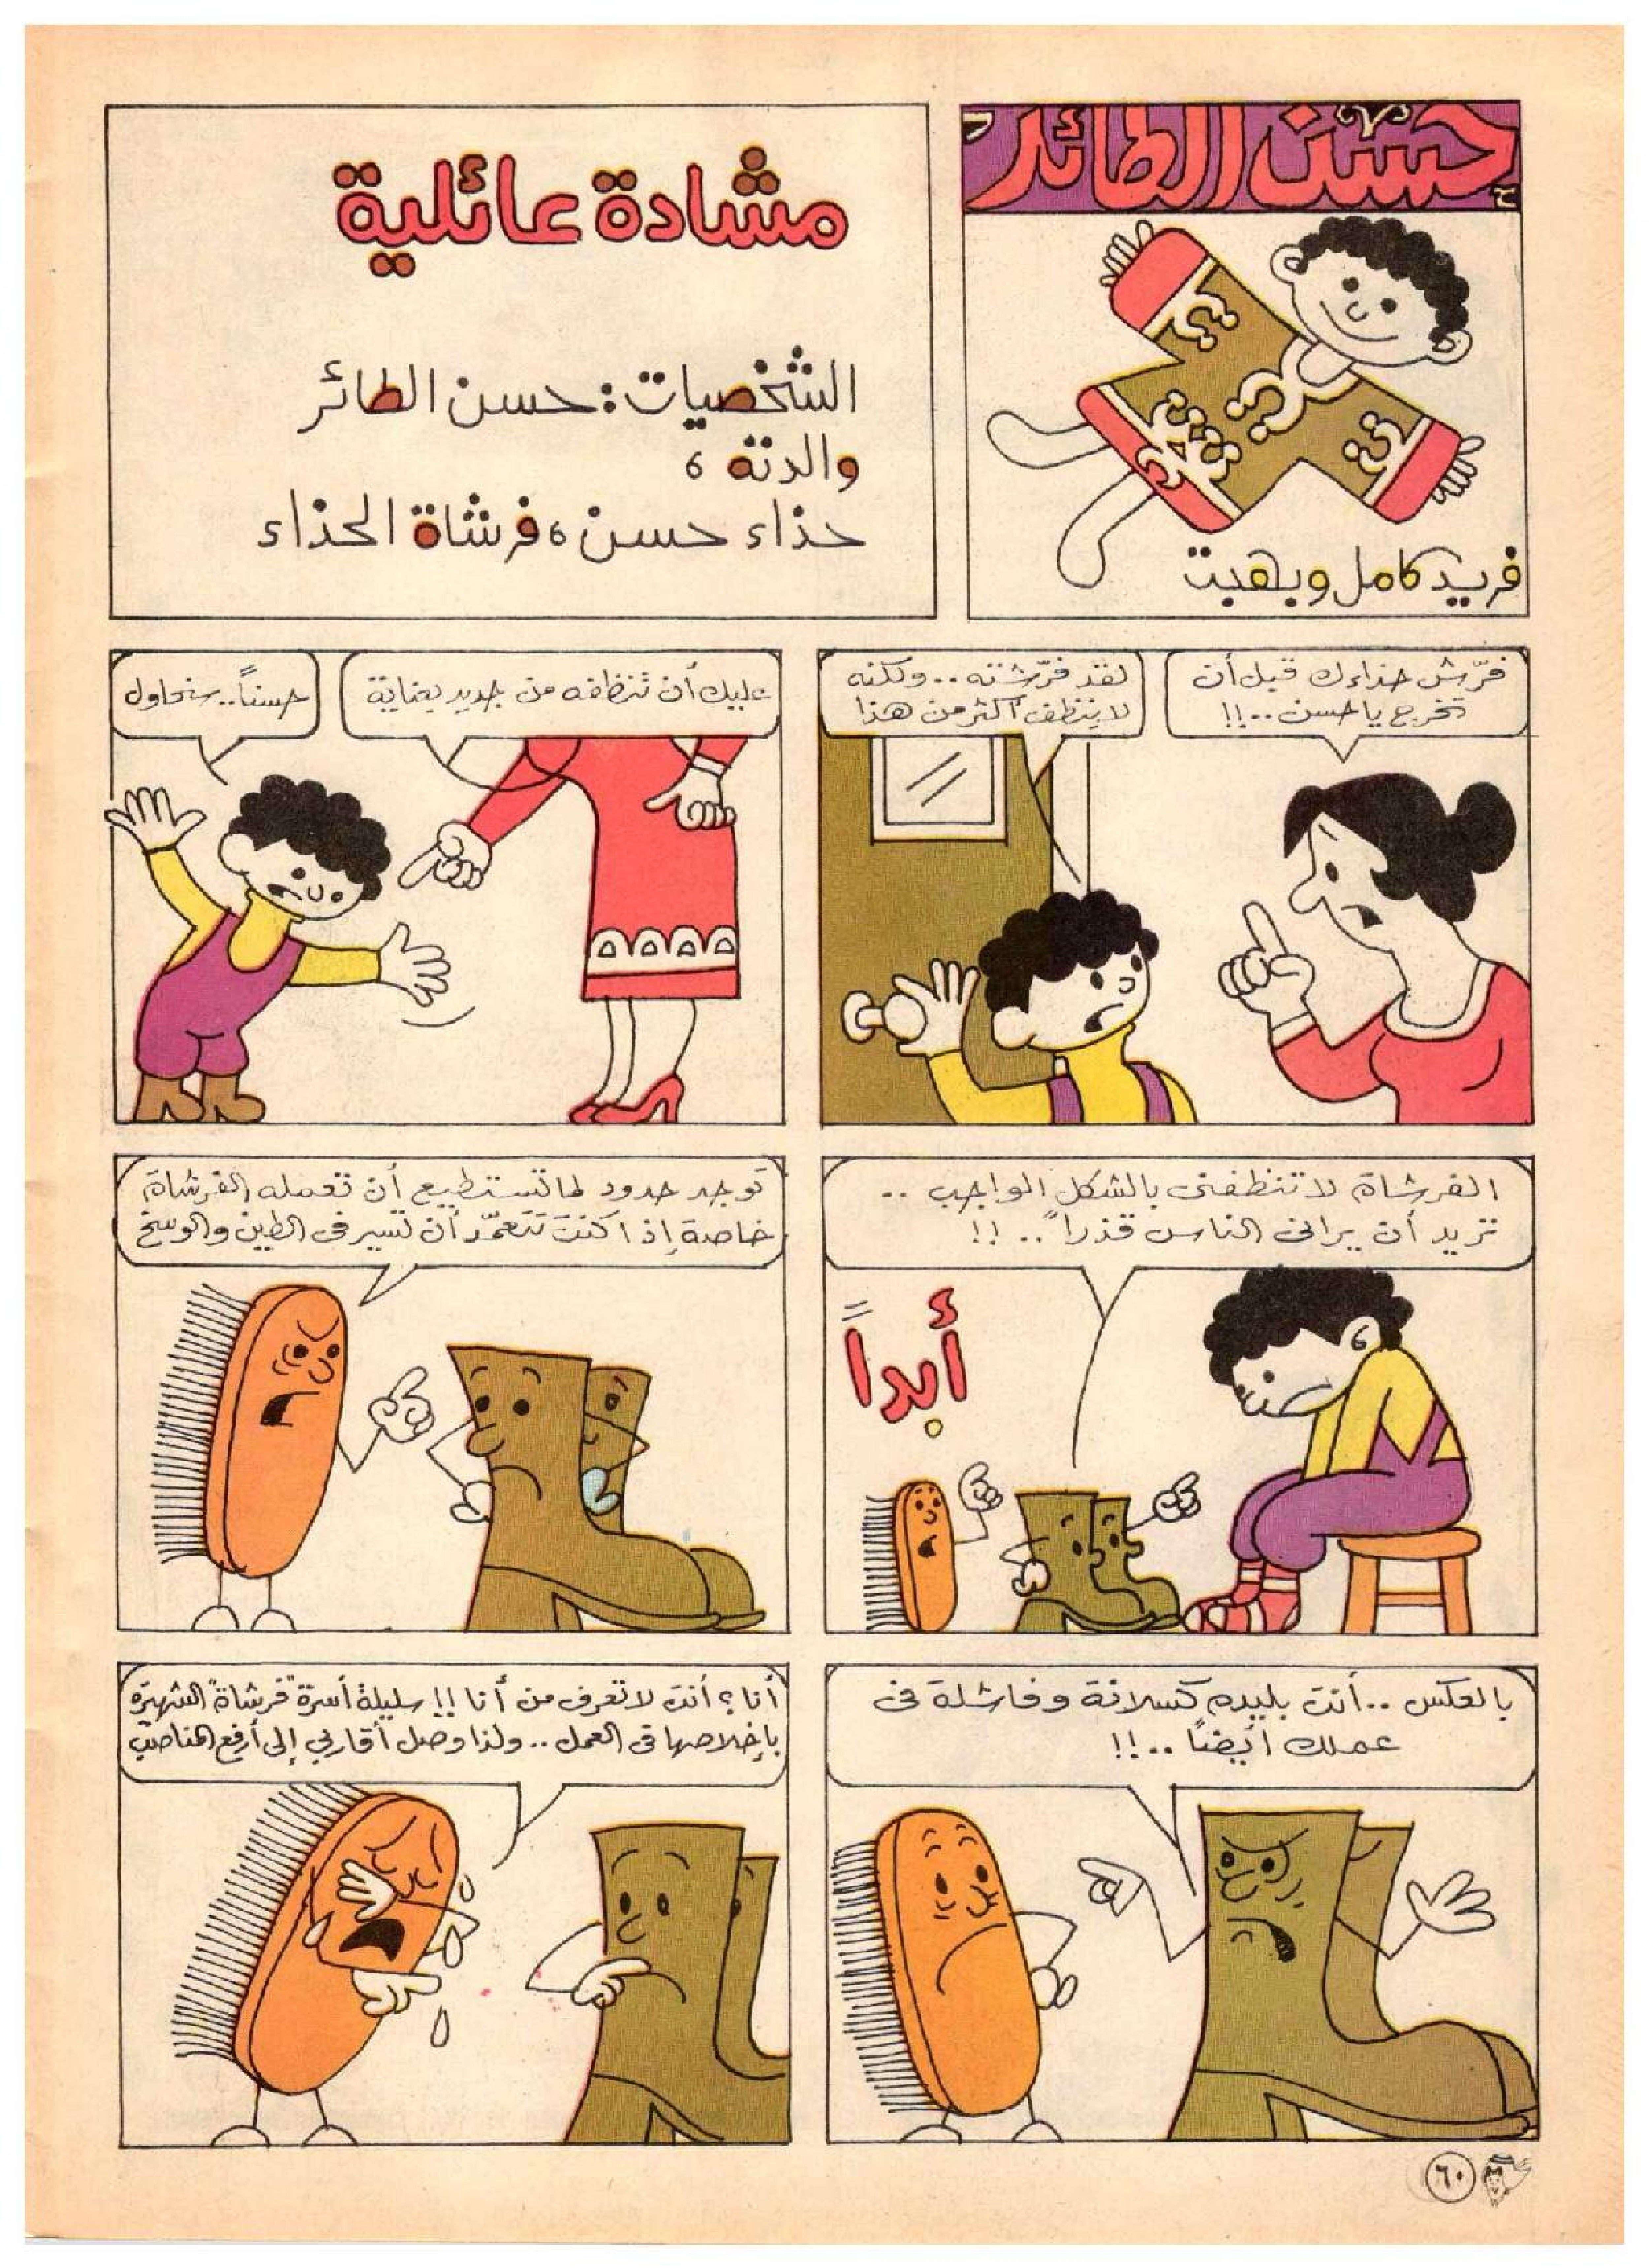 حسن الطائر
فريد كامل وبهجت
مشادة عائلية
الشخصيات: حسن الطائر
والدته،
حذاء حسن، فرشاة الحذاء
فرّش حذاءك قبل أن
تخرج يا حسن..!!
لقد فرّشته.. ولكنه
لا ينظف أكثر من هذا
عليك أن تنظفه من جديد بعناية
حسناً.. سنحاول
الفرشاة لا تنظفنى بالشكل الواجب ..
تريد أن يرانى الناس قذراً .. !!
أبداً
توجد حدود لما تستطيع أن تعمله الفرشاة
خاصة إذا كنتَ تتعمّد أن تسير فى الطين والوسخ
بالعكس .. أنت بليده كسلانة وفاشلة فى
عملك أيضاً ..!!
أنا؟ أنت لا تعرف من أنا !! سليلة أسرة "فرشاة" الشهيرة
بإخلاصها فى العمل .. ولذا وصل أقاربي إلى أرفع المناصب
٦٠